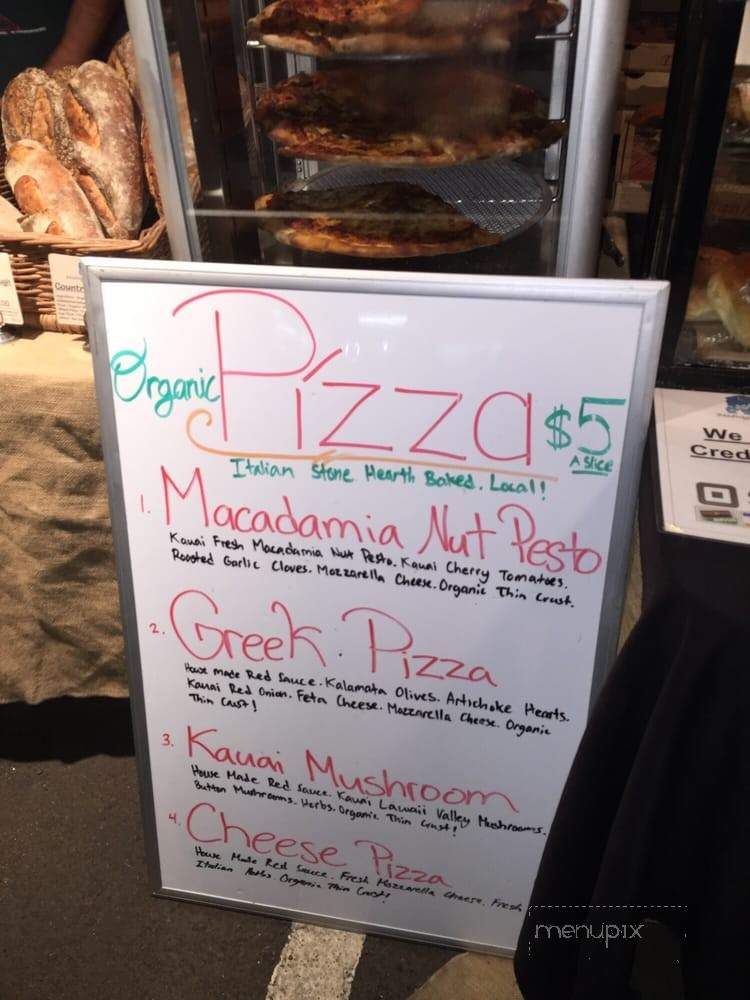 Organic Pizza $5
A Slice
Italian Stone Hearth Baked. Local!
1. Macadamia Nut Pesto
Kauai Fresh Macadamia Nut Pesto. Kauai Cherry Tomatoes.
Roasted Garlic Cloves. Mozzarella Cheese. Organic Thin Crust.
2. Greek Pizza
House made Red Sauce. Kalamata Olives. Artichoke Hearts.
Kauai Red Onion. Feta Cheese. Mozzarella Cheese. Organic
Thin Crust!
3. Kauai Mushroom
House Made Red Sauce. Kauai Lawaii Valley Mushrooms.
Button Mushrooms. Herbs. Organic Thin Crust!
4. Cheese Pizza
House Made Red Sauce. Fresh Mozzarella Cheese. Fresh
Italian Herbs. Organic Thin Crust!
Countr
We
Cred
menupix